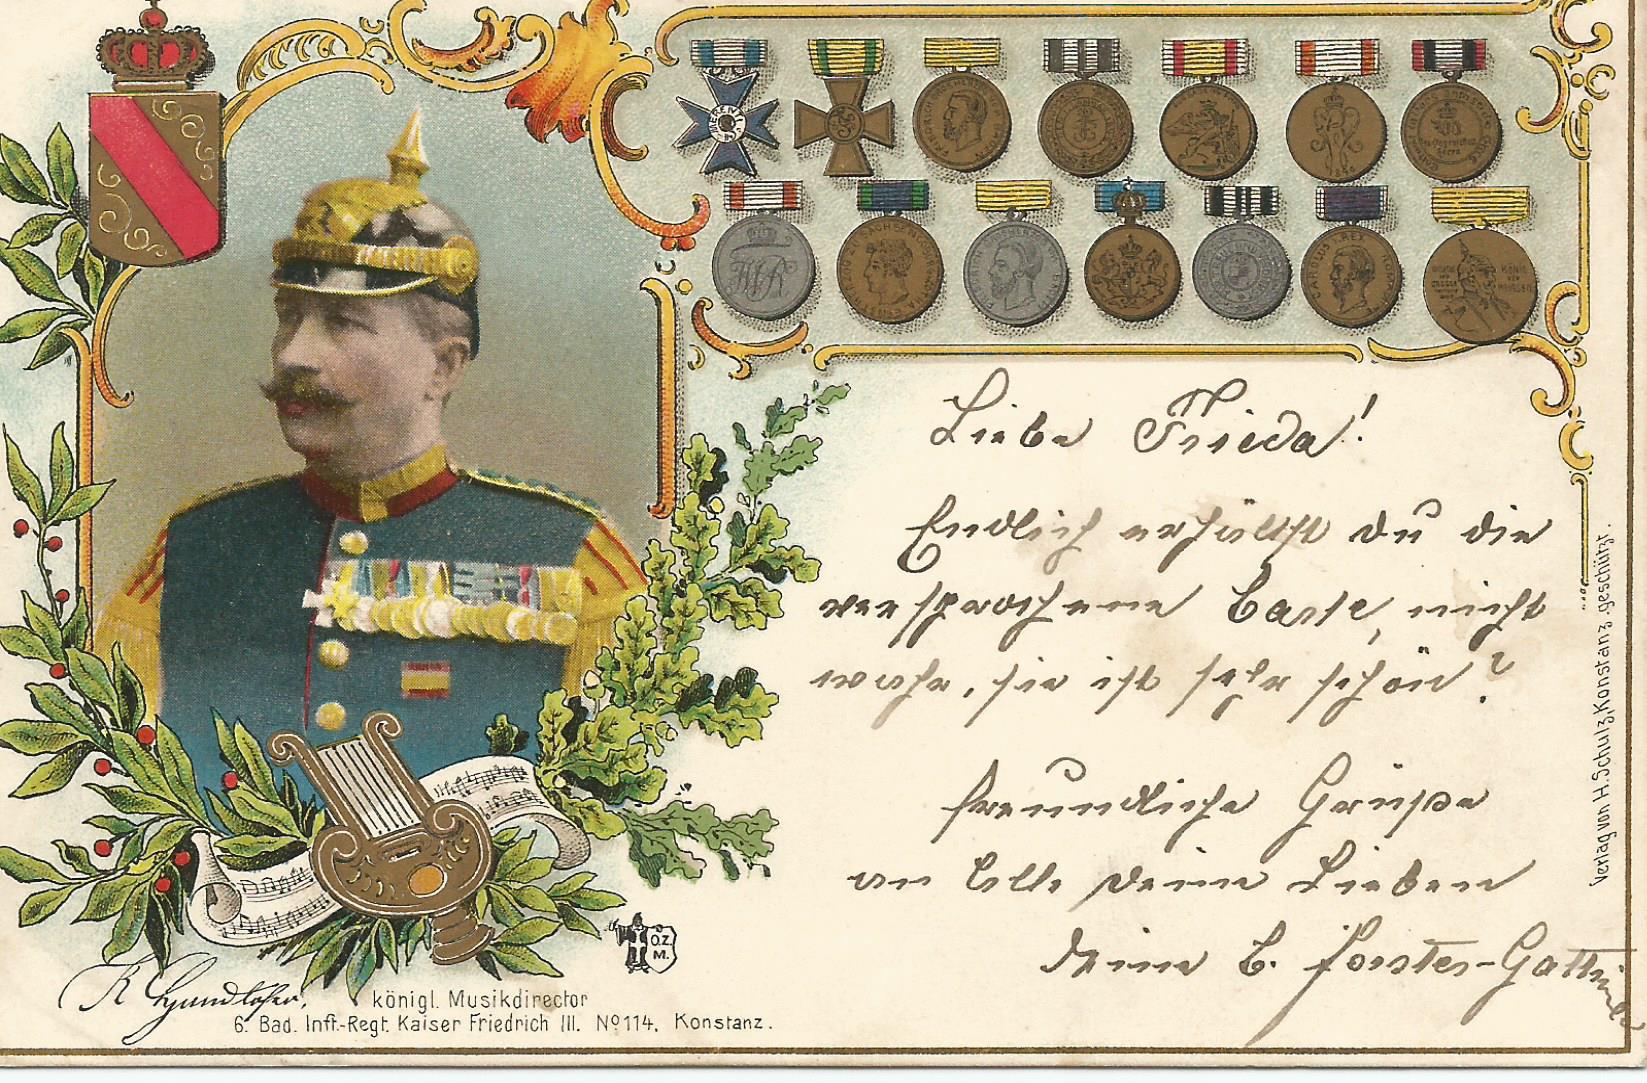 Liebe Frieda!
Endlich erhältst du die
versprochene Carte, nicht
wahr, sie ist sehr schön?
freundliche Grüße
an Alle deine Lieben
deine C. Forster-Gattiker
K Handloser,
königl. Musikdirector
6. Bad. Inft.-Regt. Kaiser Friedrich III. No 114. Konstanz.
O.Z.
M.
Verlag von H. Schulz, Konstanz, geschützt.